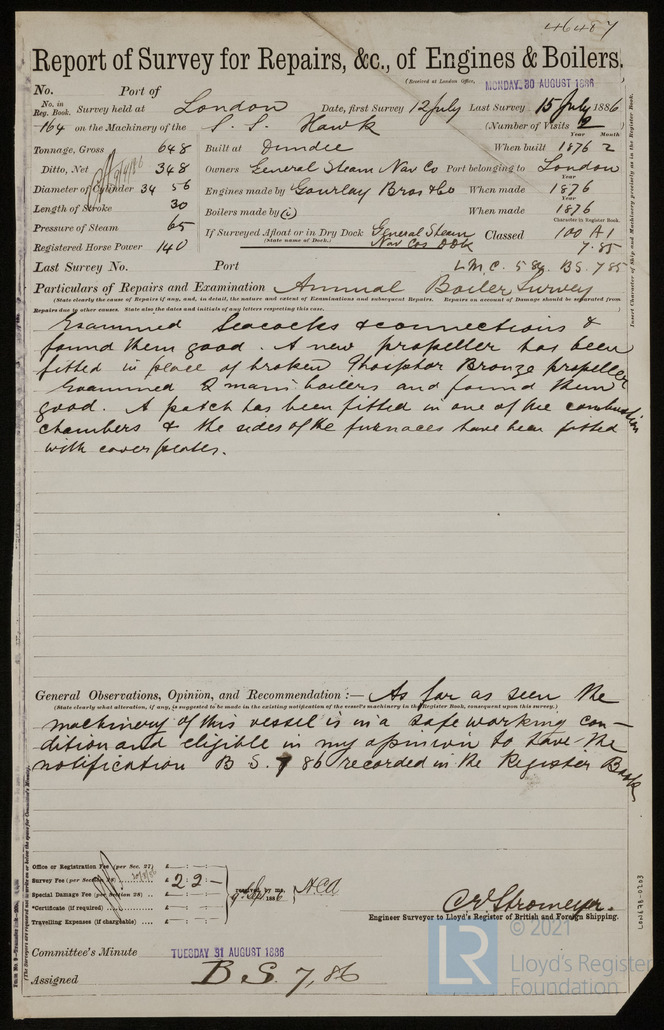 46407
Report of Survey for Repairs, &c., of Engines & Boilers.
(Received at London Office, MONDAY 30 AUGUST 1886
No. Port of
No. in Reg. Book. Survey held at London Date, first Survey 12 July Last Survey 15 July 1886
164 on the Machinery of the S. S. Hawk (Number of Visits 2 )
Tonnage, Gross 648 Built at Dundee When built 1876 2
Year Month
Ditto, Net 348 Owners General Steam Nav Co Port belonging to London
Diameter of Cylinder 34 56 Engines made by Gourlay Bros & Co When made 1876
Year
Length of Stroke 30 Boilers made by When made 1876
Year
Pressure of Steam 65 If Surveyed Afloat or in Dry Dock General Steam Nav Cos Dok Classed 100 A1
(State name of Dock.)
Character in Register Book.
Registered Horse Power 140 7.85
Last Survey No. Port L.M.C. 5 84 B.S. 7 85
Particulars of Repairs and Examination Annual Boiler Survey
(State clearly the cause of Repairs if any, and, in detail, the nature and extent of Examinations and subsequent Repairs. Repairs on account of Damage should be separated from
Repairs due to other causes. State also the dates and initials of any letters respecting this case.)
Examined Seacocks & connections &
found them good. A new propeller has been
fitted in place of broken Phosphor Bronze propeller
Examined 2 main boilers and found them
good. A patch has been fitted in one of the combustion
chambers & the sides of the furnaces have been fitted
with cover plates.
General Observations, Opinion, and Recommendation :— As far as seen the
(State clearly what alteration, if any, is suggested to be made in the existing notification of the vessel's machinery in the Register Book, consequent upon this survey.)
machinery of this vessel is in a safe working con-
dition and eligible in my opinion to have the
notification B S. 7 86 recorded in the Register Book
Office or Registration Fee (per Sec. 27) £ : :
Survey Fee (per Section 28) £ 2 : 2 : -
Special Damage Fee (per Section 28) £ : :
*Certificate (if required) £ : :
Travelling Expenses (if chargeable) £ : :
received by me,
1886
C. E. Stromeyer.
Engineer Surveyor to Lloyd's Register of British and Foreign Shipping.
Committee's Minute TUESDAY 31 AUGUST 1886
Assigned B S. 7, 86
Insert Character of Ship and Machinery precisely as in the Register Book.
LON678-0203
© 2021
LR
Lloyd's Register
Foundation